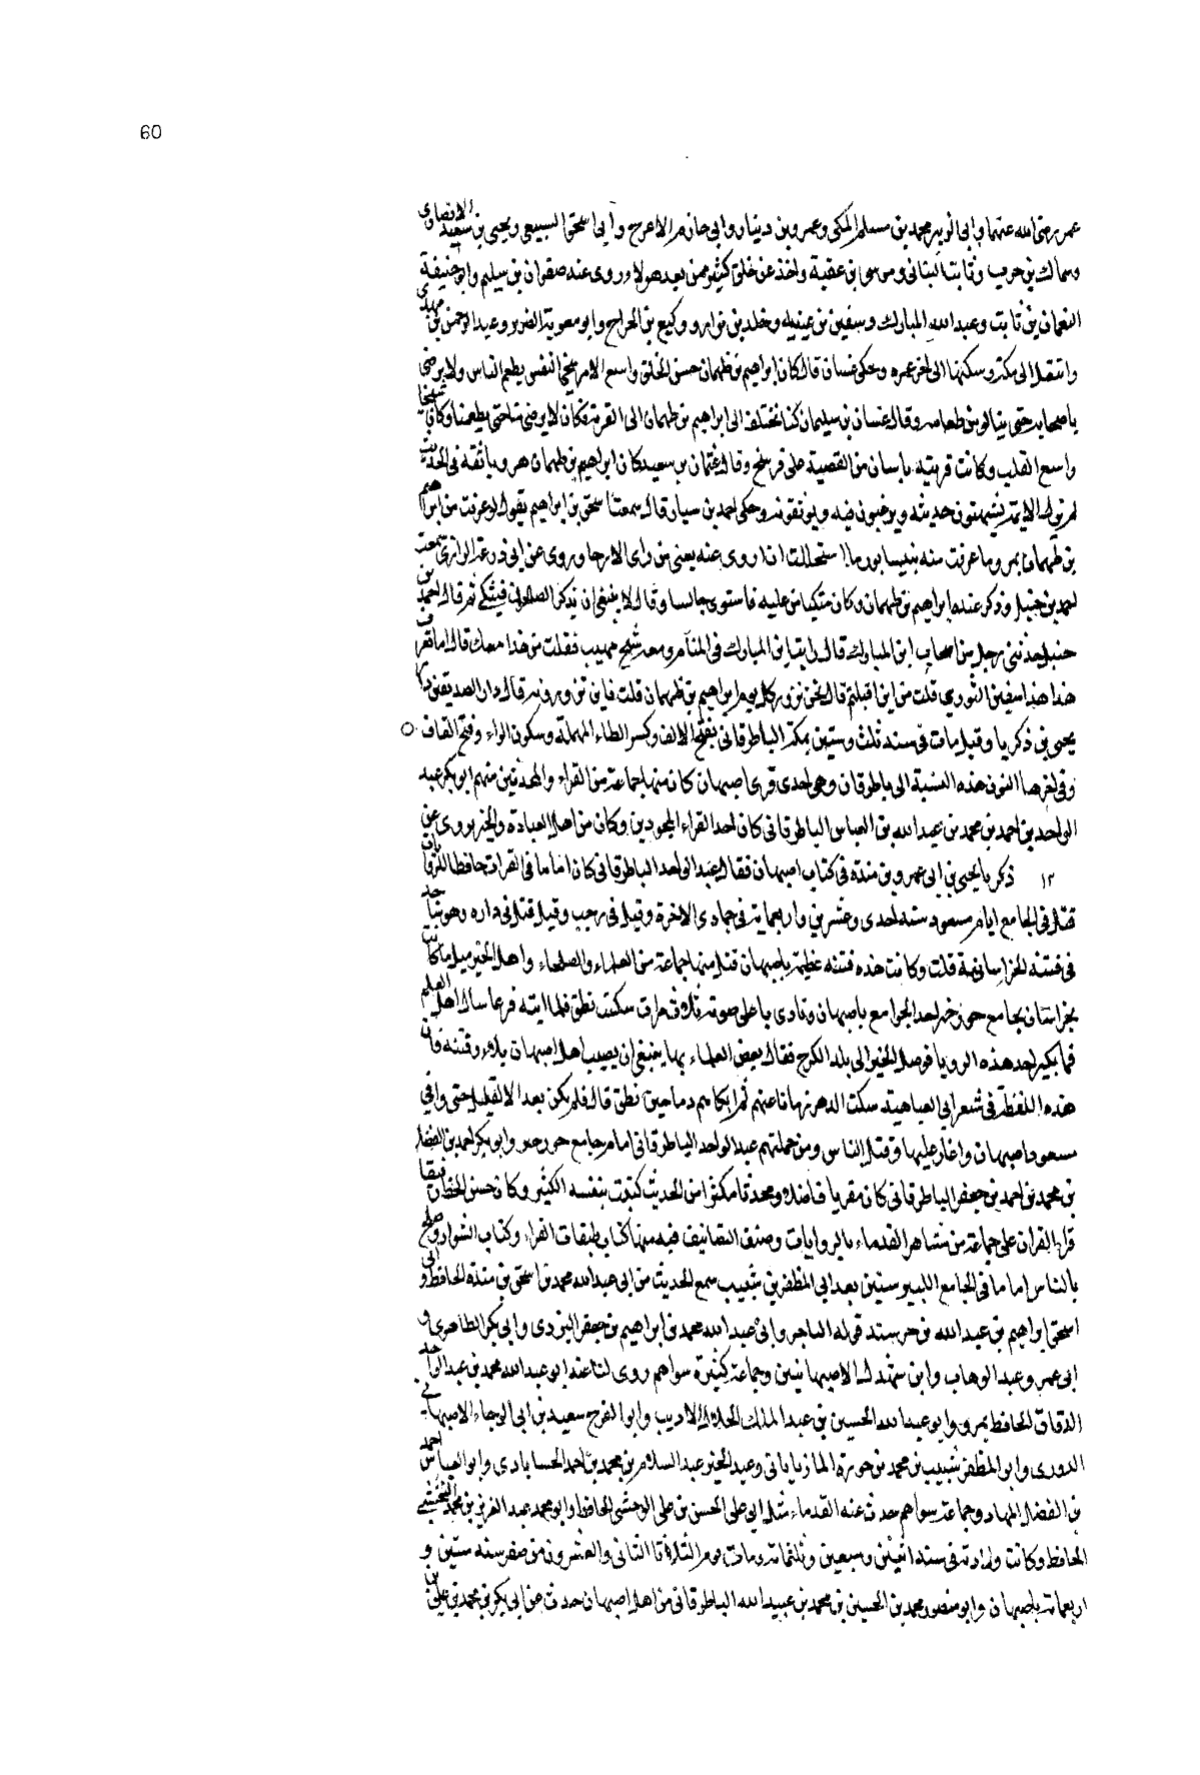 60
عمر رضى الله عنهما وابى الزبير محمد بن مسلم المكى وعمرو بن دينار وابى حازم الاعرج وابى اسحق السبيعى ويحيى بن سعيد الانصارى
وسماك بن حرب وثابت البنانى وموسى بن عقبة واخذ عن خلق كثير ممن بعد هولاء روى عنه صفوان بن سليم وابو حنيفة
النعمان بن ثابت وعبد الله المبارك وسفين بن عيينه وخلد بن نزار ووكيع بن الجراح وابو معوية الضرير وعبد الرحمن بن مهدى
وانتقل الى مكة وسكنها الى اخر عمره وحكى غسان قال كان ابراهيم بن طهمان حسن الخلق واسع الامر سخى النفس يطعم الناس ولا يرضى
باصحابه حتى ينالو من طعامه وقال غسان بن سليمان كنا نختلف الى ابراهيم بن طهمان الى القرية فكان لا يرضى منا حتى يطعمنا وكان شيخا
واسع القلب وكانت قريته باسان من القصبة على فرسخ وقال عثمان بن سعيد كان ابراهيم بن طهمان هرويا ثقه فى الحديث
لم تزل الايمة يشتهون حديثه ويرغبون فيه ويوثقونه وحكى احمد بن سيار قال سمعت اسحق بن ابراهيم يقول لو عرفت من ابراهيم
بن طهمان بمرو ما عرفت منه بنيسابور ما استحللت ان اروى عنه يعنى من راى الارجا وروى عن ابى زرعة الرازى سمعت
احمد بن حنبل وذكر عنده ابراهيم بن طهمان وكان متكيا من عليه فاستوى جالسا وقال لا ينبغى ان يذكر الصالحون فيتكى ثم قال احمد بن
حنبل حدثنى رجل من اصحاب ابن المبارك قال رايت ابن المبارك فى المنام ومعه شيخ مهيب فقلت من هذا معك قال اما تعرف
هذا هذا سفين الثورى قلت من اين اقبلتم قال نحن نزور كل يوم ابراهيم بن طهمان قلت فاين تزورونه قال دار الصديقين دار
يحيى بن زكريا وقيل مات فى سنة ثلث وستين بمكة الباطرقانى بفتح الالف وكسر الطاء المهملة وسكون الراء وفتح القاف
وفى اخرها النون هذه النسبة الى باطرقان وهى احدى قرى اصبهان كان منها جماعة من القراء والمحدثين منهم ابو بكر عبد
الواحد بن احمد بن محمد بن عبد الله بن العباس الباطرقانى كان احد القراء المجودين وكان من اهل العبادة والخير يروى عن
١٢ ذكر يا يحيى بن ابى عمرو بن مندة فى كتاب اصبهان فقال عبد الواحد الباطرقانى كان اماما فى القراءة حافظا للروايات
قتل فى الجامع ايام مسعود سنه احدى وعشرين واربعماية فى جمادى الاخرة وقيل فى رجب وقيل قتل فى داره وهو
فى فتنه الخراسانية قلت وكانت هذه فتنه عظيمة باصبهان قتل منها جماعة من العلماء والصلحاء واهل الخير
باصبهان ونادى باعلى صوته سكت نطق فلما انتبه فزعا سال اهل العلم
فما بكير احد هذه الرويا فوصل الخبر الى بلد الكرج فقال بعض العلماء بها ينبغى ان يصيب اهل اصبهان بلاء وفتنه فان
هذه اللفظة فى شعر ابى العتاهية سكت الدهر زمانا عنهم ثم ابكاهم دما حين نطق قال فلم يكن بعد الا القليل حتى وافى
مسعود اصبهان واغار عليها وقتل الناس ومن جملتهم عبد الواحد الباطرقانى امام جامع وابو بكر احمد بن الفضل
بن محمد بن احمد بن جعفر الباطرقانى كان مقريا فاضلا ومحدثا مكثرا من الحديث كتب بنفسه الكثير وكان حسن الخط
قرا القران على جماعة من مشاهر القدماء بالروايات وصنف التصانيف فيه منها كتاب طبقات القراء وكتاب الشواذ وصلى
بالناس اماما فى الجامع الكبير سنين بعد ابى المظفر بن شبيب سمع الحديث من ابى عبد الله محمد بن اسحق بن مندة الحافظ وابى
اسحق ابراهيم بن عبد الله بن خرشيد قوله التاجر وابى عبد الله محمد بن ابراهيم بن جعفر اليزدى وابى بكر الطاهرى و
ابى عمر وعبد الوهاب وابن الاصبهانيين وجماعة كثيرة سواهم روى لنا عنه ابو عبد الله محمد بن عبد الواحد
الدقاق الحافظ بمرو وابو عبد الله الحسين بن عبد الملك الخلال الاديب وابو الفرج سعيد بن ابى الرجاء الاصبهانى
الدورى وابو المظفر شبيب بن محمد بن وعبد الخير عبد السلام بن محمد بن احمد الحسابادى وابو العباس احمد
بن الفضل المهاد وجماعة سواهم حدث عنه القدماء مثل ابى على الحسن بن على الوحشى الحافظ وابو محمد عبد العزيز بن محمد النخشبى
الحافظ وكانت ولادته فى سنة اثنين وسبعين وثلثماية ومات يوم الثلاثا الثانى والعشرون من صفر سنه ستين و
اربعماية باصبهان وابو منصور محمد بن الحسين بن محمد بن عبيد الله الباطرقانى من اهل اصبهان حدث عن ابى بكر بن محمد بن على بن